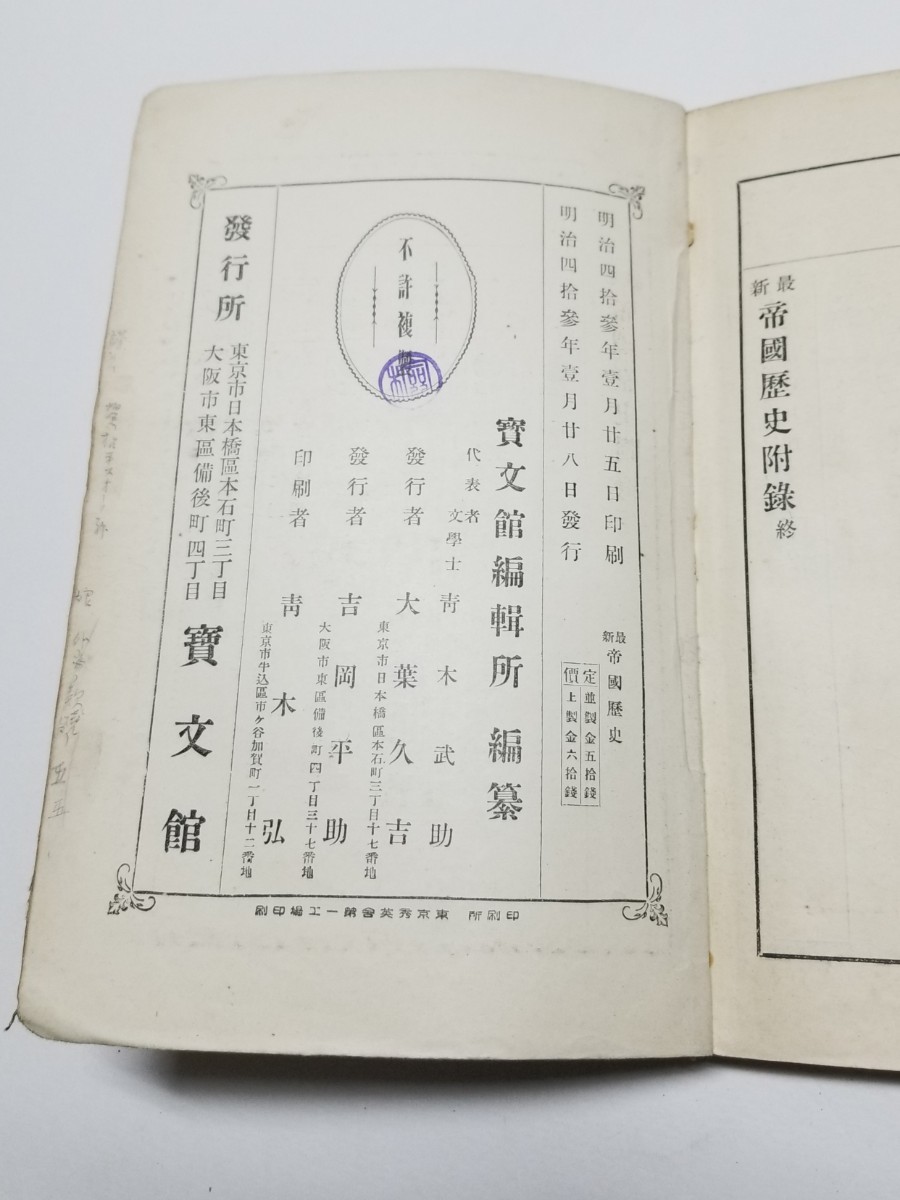 最新
帝國歷史附錄終
明治四拾參年壹月廿五日印刷
明治四拾參年壹月廿八日發行
最新帝國歷史
定價
並製金五拾錢
上製金六拾錢
不許複製
寶文館編輯所 編纂
代表者 文學士 靑木武助
發行者 大葉久吉
東京市日本橋區本石町三丁目十七番地
發行者 吉岡平助
大阪市東區備後町四丁目三十七番地
印刷者 靑木弘
東京市牛込區市ヶ谷加賀町一丁目十二番地
發行所
東京市日本橋區本石町三丁目
大阪市東區備後町四丁目
寶文館
印刷所 東京秀英舍第一工場印刷